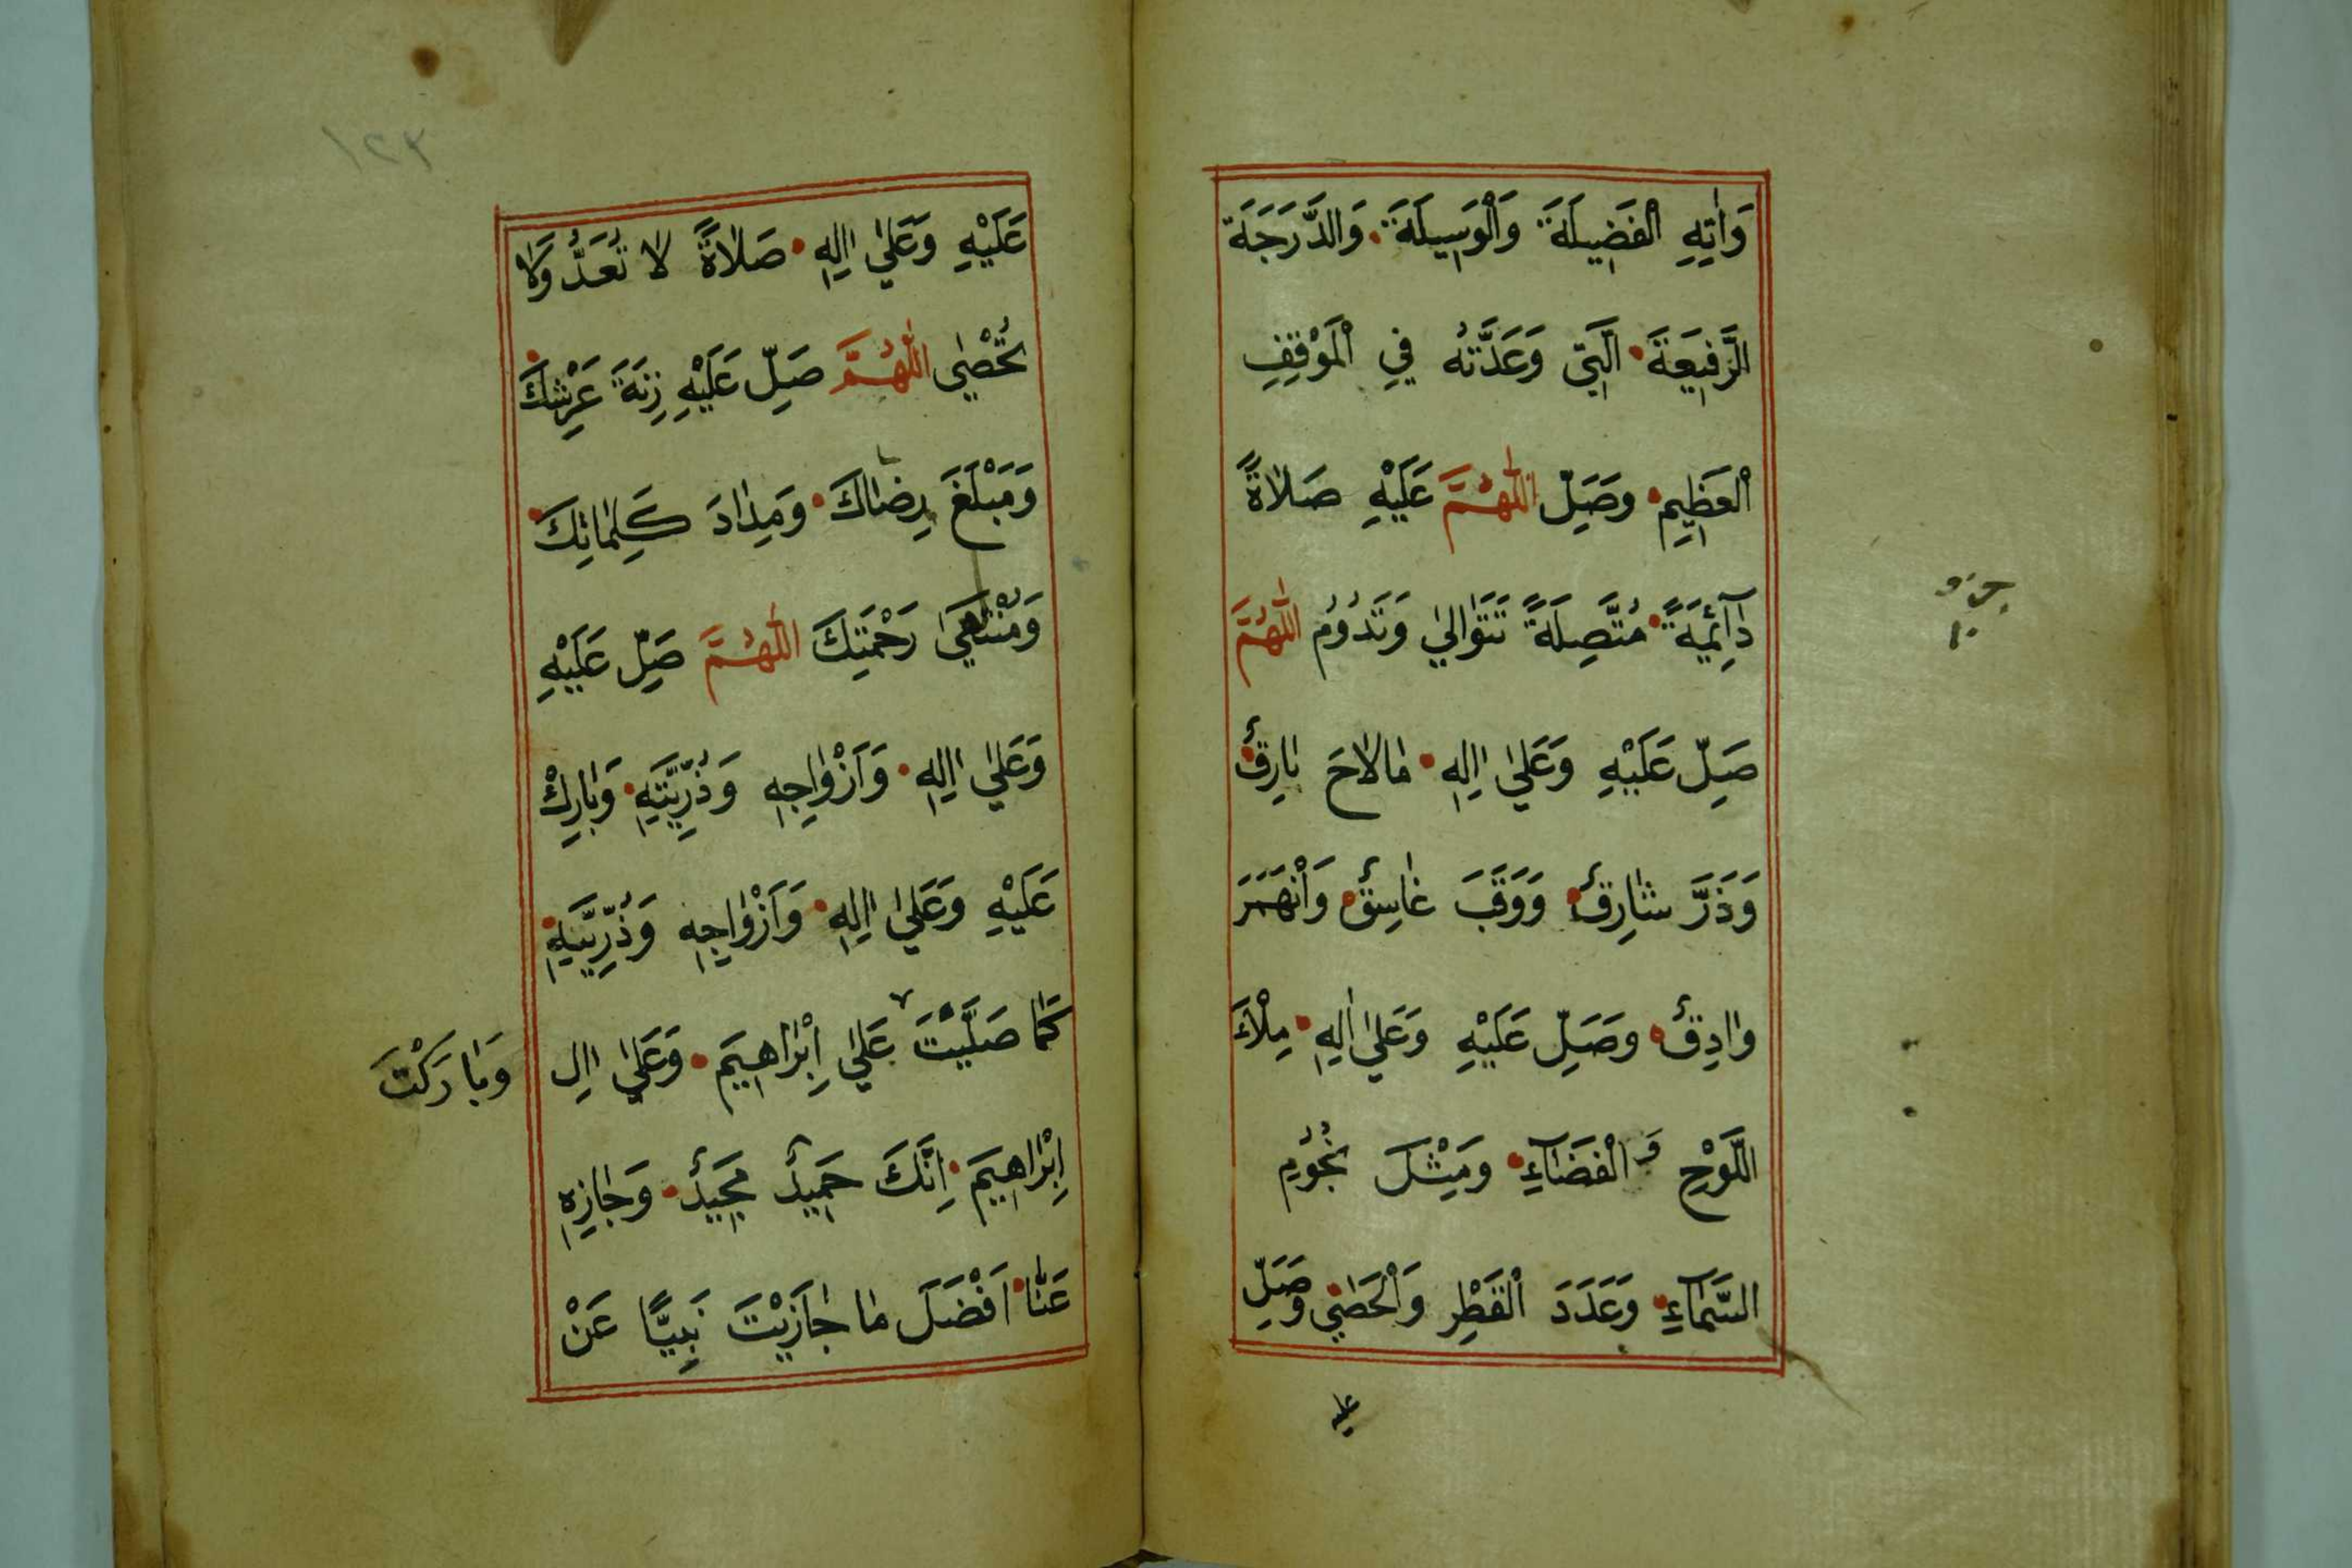 وَاٰتِهِ الْفَضِيلَةَ وَالْوَسِيلَةَ وَالدَّرَجَةَ
الرَّفِيعَةَ الَّتِي وَعَدْتَهُ فِي الْمَوْقِفِ
الْعَظِيمِ وَصَلِّ اللّٰهُمَّ عَلَيْهِ صَلَاةً
دَآئِمَةً مُتَّصِلَةً تَتَوَالٰي وَتَدُومُ اللّٰهُمَّ
صَلِّ عَلَيْهِ وَعَلٰي اٰلِهِ مَا لَاحَ بَارِقٌ
وَذَرَّ شَارِقٌ وَوَقَبَ غَاسِقٌ وَانْهَمَرَ
وَادِقٌ وَصَلِّ عَلَيْهِ وَعَلٰي اٰلِهِ مِلْاَ
اللَّوْحِ وَالْفَضَآءِ وَمِثْلَ نُجُومِ
السَّمَآءِ وَعَدَدَ الْقَطْرِ وَالْحَصٰي وَصَلِّ
عليه
جزو
١٠
١٢٣
عَلَيْهِ وَعَلٰي اٰلِهِ صَلَاةً لَا تُعَدُّ وَلَا
تُحْصٰي اللّٰهُمَّ صَلِّ عَلَيْهِ زِنَةَ عَرْشِكَ
وَمَبْلَغَ رِضَاكَ وَمِدَادَ كَلِمَاتِكَ
وَمُنْتَهٰي رَحْمَتِكَ اللّٰهُمَّ صَلِّ عَلَيْهِ
وَعَلٰي اٰلِهِ وَاَزْوَاجِهِ وَذُرِّيَّتِهِ وَبَارِكْ
عَلَيْهِ وَعَلٰي اٰلِهِ وَاَزْوَاجِهِ وَذُرِّيَّتِهِ
كَمَا صَلَّيْتَ وَبَارَكْتَ عَلٰي اِبْرَاهِيمَ وَعَلٰي اٰلِ
اِبْرَاهِيمَ اِنَّكَ حَمِيدٌ مَجِيدٌ وَجَازِهِ
عَنَّا اَفْضَلَ مَا جَازَيْتَ نَبِيًّا عَنْ